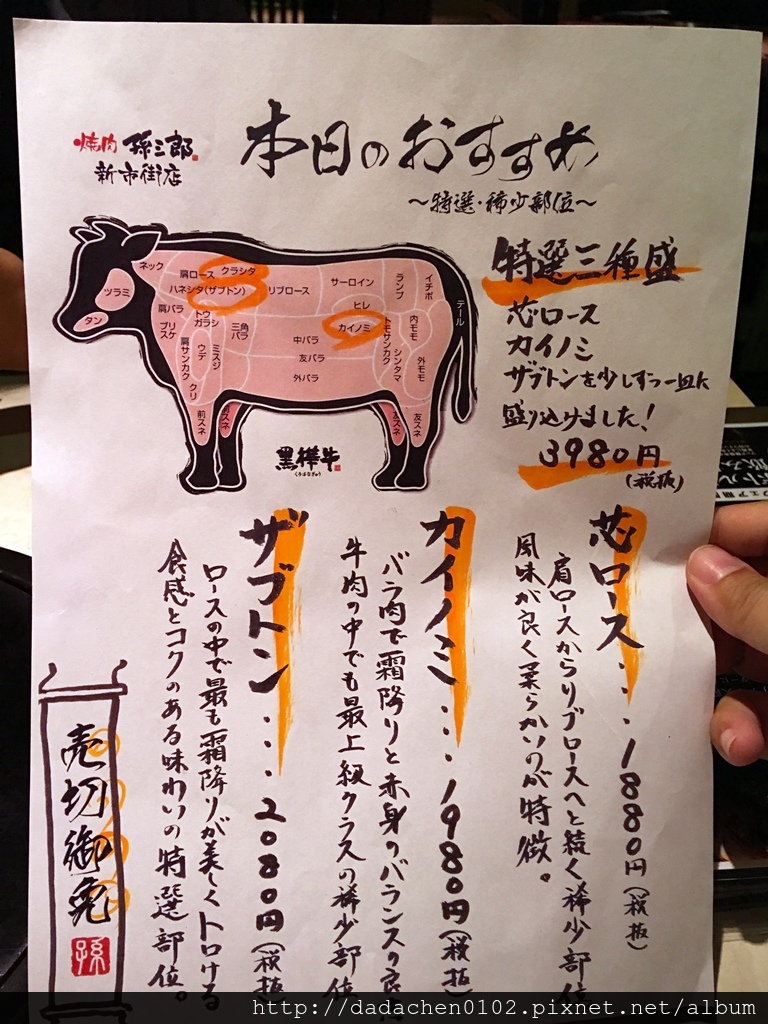 焼肉 孫三郎
新市街店
本日のおすすめ
〜特選・稀少部位〜
ネック
肩ロース
クラシタ
ハネシタ(ザブトン)
リブロース
サーロイン
ランプ
イチボ
テール
ツラミ
タン
肩バラ
トウガラシ
ブリスケ
三角バラ
ヒレ
カイノミ
トモサンカク
内モモ
シンタマ
外モモ
肩サンカク
ウデ
ミスジ
クリ
中バラ
友バラ
外バラ
前スネ
前スネ
友スネ
友スネ
黒樺牛
くろはなぎゅう
特選三種盛
芯ロース
カイノミ
ザブトンを少しずつ一皿に
盛り込けました!
3980円
(税抜)
芯ロース・・・1880円(税抜)
肩ロースからリブロースへと続く稀少部位
風味が良く柔らかいのが特徴。
カイノミ・・・1980円(税抜)
バラ肉で霜降りと赤身のバランスの良
牛肉の中でも最上級クラスの稀少部位
ザブトン・・・2080円(税抜
ロースの中で最も霜降りが美しくトロける
食感とコクのある味わいの特選部位。
売切御免
孫
http://dadachen0102.pixnet.net/album